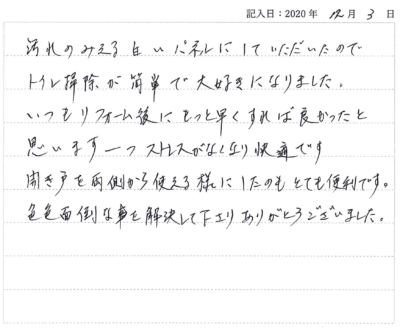 記入日：2020年 12月 3日
汚れのみえる白いパネルにしていただいたので
トイレ掃除が簡単で大好きになりました。
いつもリフォーム後にもっと早くすれば良かったと
思います一つストレスがなくなり快適です
開き戸を両側から使える様にしたのもとても便利です。
色色面倒な事を解決して下さりありがとうございました。